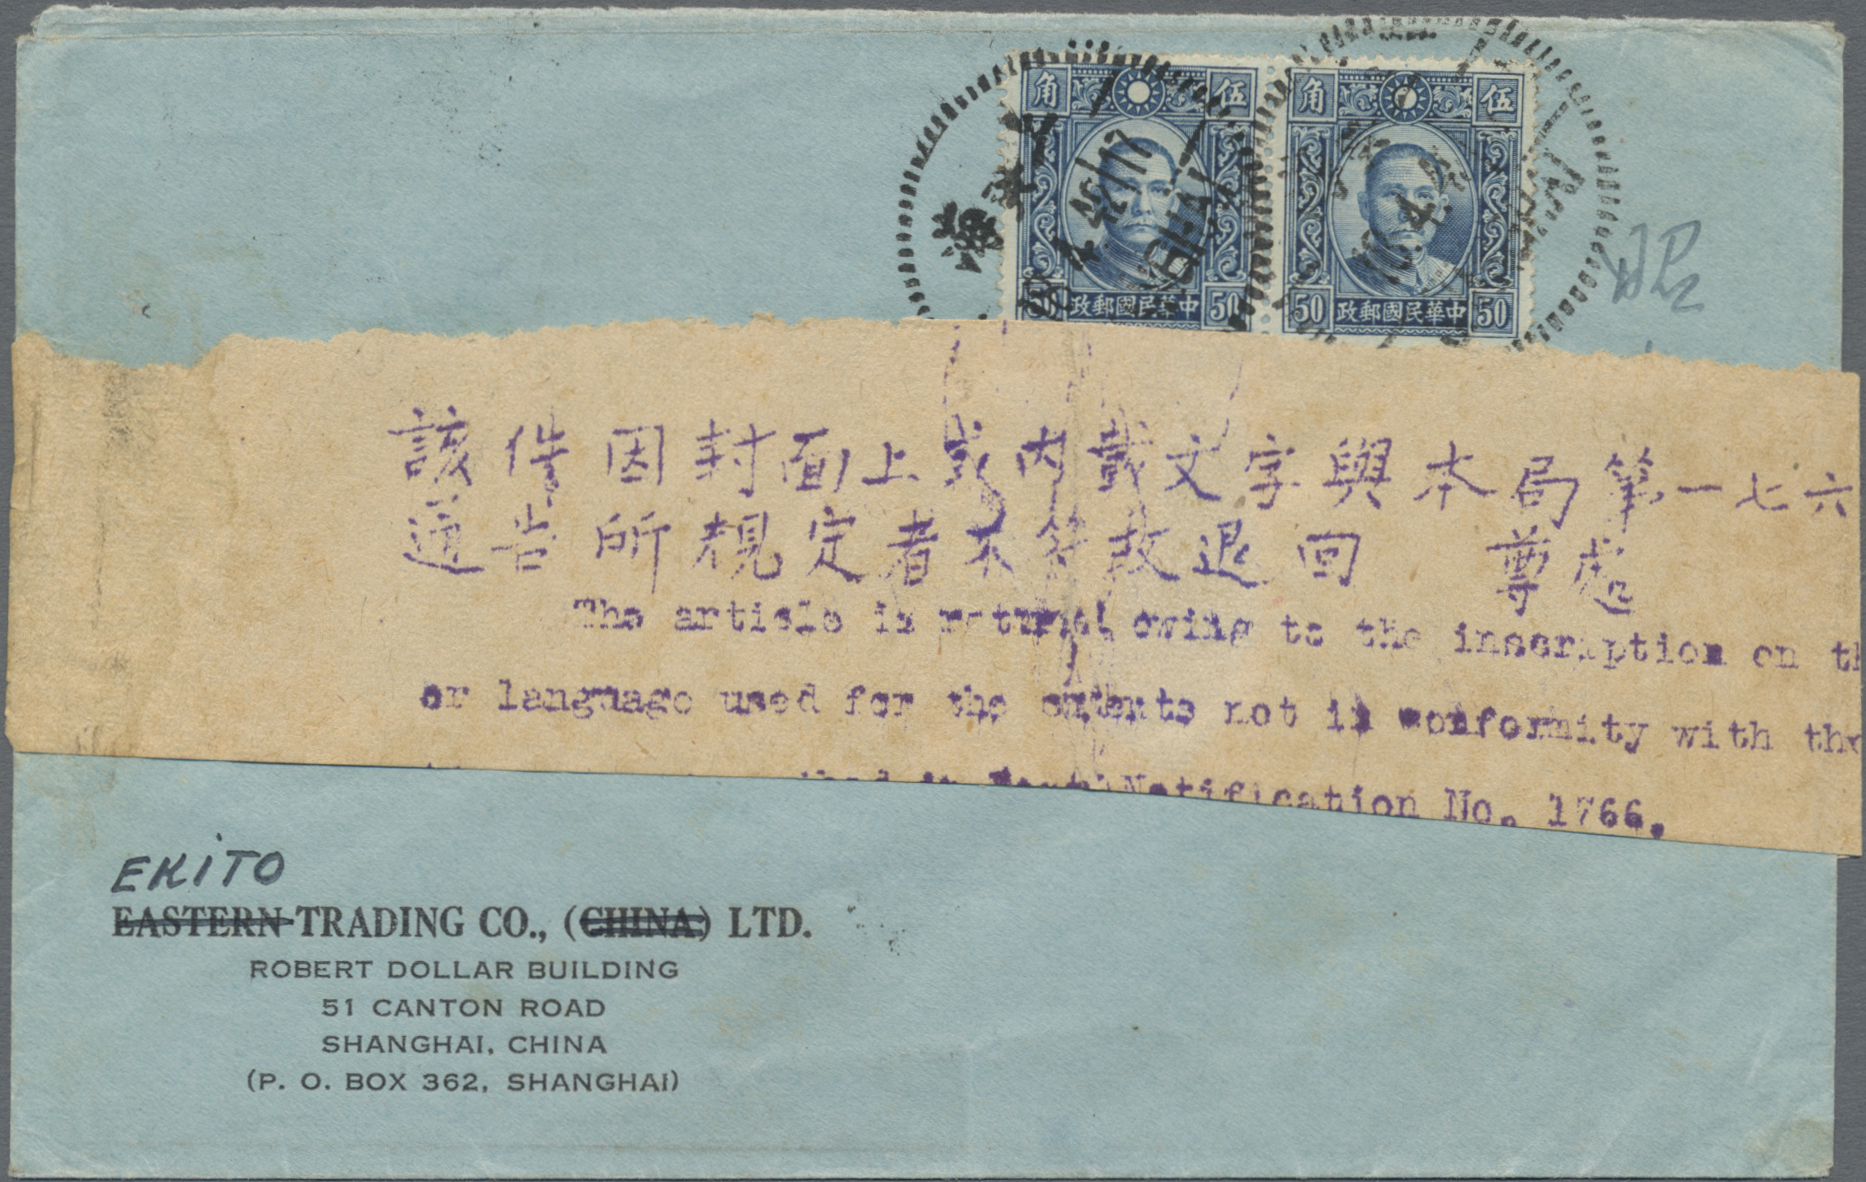 角 伍 角 伍
50 政郵國民華中 50 50 政郵國民華中 50
該件因封面上或內載文字與本局第一七六
通告所規定者不符故退回 尊處
The article is returned owing to the inscription on th
or language used for the contents not in conformity with the
Notification No. 1766.
EKITO
EASTERN TRADING CO., (CHINA) LTD.
ROBERT DOLLAR BUILDING
51 CANTON ROAD
SHANGHAI, CHINA
(P. O. BOX 362, SHANGHAI)